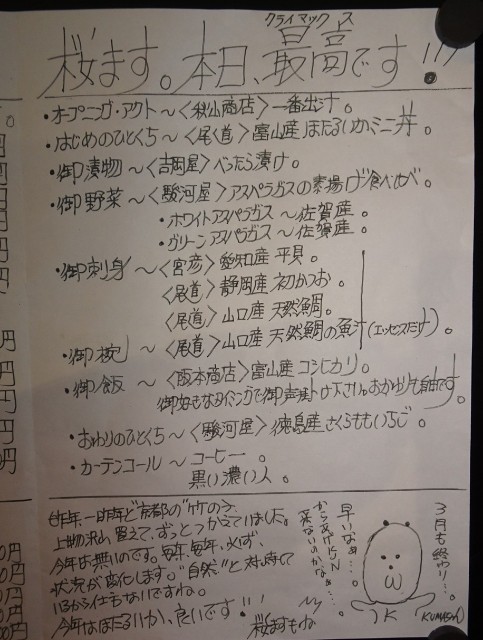 クライマックス
桜ます。本日、最高です!!!
・オープニング・アクト〜〈秋山商店〉一番出汁。
・はじめのひとくち〜〈尾道〉富山産ほたるいかミニ丼。
・御漬物〜〈吉岡屋〉べったら漬け。
・御野菜〜〈駿河屋〉アスパラガスの素揚げ食べ比べ。
・ホワイトアスパラガス〜佐賀産。
・グリーンアスパラガス〜佐賀産。
・御刺身〜〈宮彦〉愛知産 平貝。
〈尾道〉静岡産 初かつお。
〈尾道〉山口産 天然鯛。
・御椀〜〈尾道〉山口産 天然鯛の魚汁(エッセンスだけ)。
・御飯〜〈阪本商店〉富山産 コシヒカリ。
御好もなタイミングで御声掛け下さい。おかわりも自由です。
・おわりのひとくち〜〈駿河屋〉徳島産さくらももいちご。
・カーテンコール〜コーヒー。
黒い濃い人。
昨年、一昨年と京都の"竹の子"
上物沢山、買えて、ずっとつかえていました。
今年は無いのです。毎年、毎年、必ず、
状況が変化します。"自然"と対峙して
いるから仕方ないですね。
今年はほたるいか、良いです!!
桜ますもね
3月も終わり…。
早いなぁ…。
K